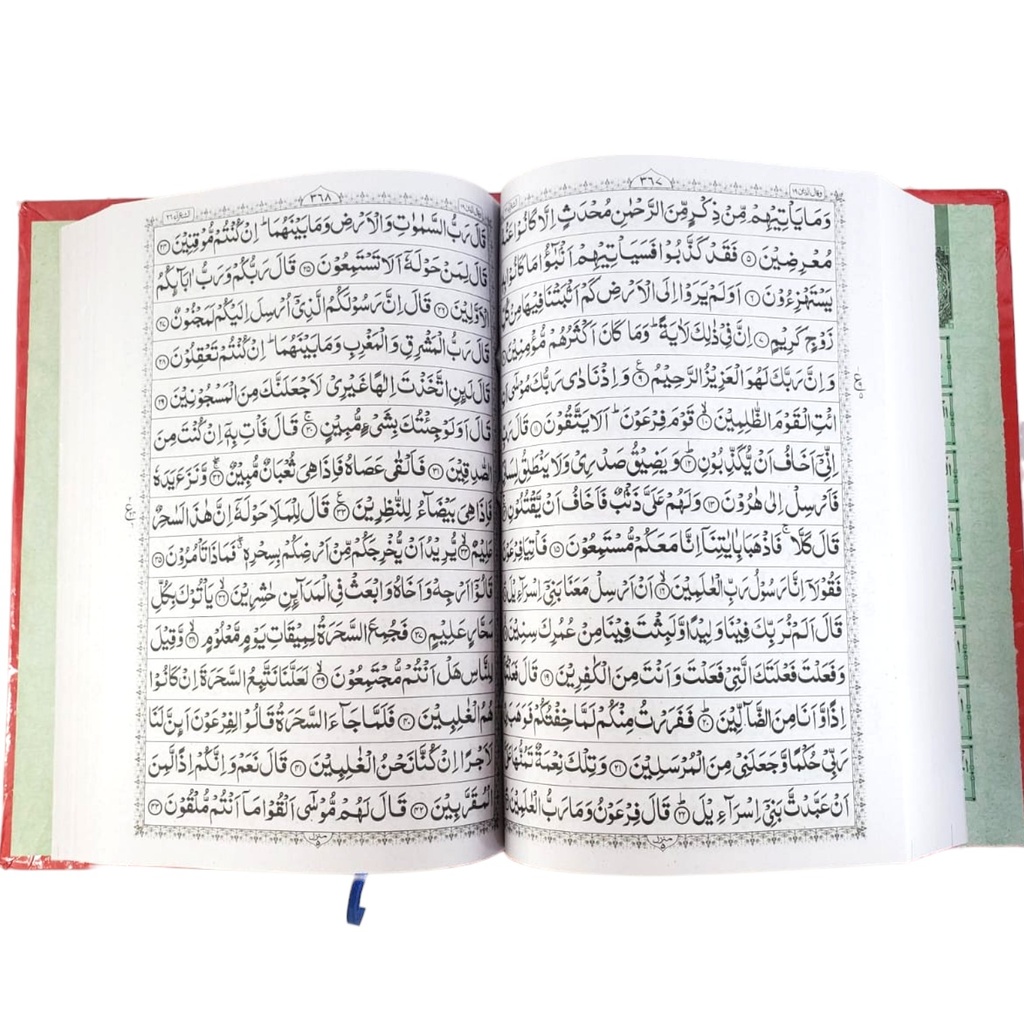 وقال الذين ١٩ ٣٦٧
وَمَا يَاْتِيْهِمْ مِّنْ ذِكْرٍ مِّنَ الرَّحْمٰنِ مُحْدَثٍ اِلَّا كَانُوْا
مُعْرِضِيْنَ ۝٥ فَقَدْ كَذَّبُوْا فَسَيَاْتِيْهِمْ اَنْۢبٰٓؤُا مَا كَانُوْا
يَسْتَهْزِءُوْنَ ۝٦ اَوَلَمْ يَرَوْا اِلَى الْاَرْضِ كَمْ اَنْۢبَتْنَا فِيْهَا مِنْ
زَوْجٍ كَرِيْمٍ ۝٧ اِنَّ فِيْ ذٰلِكَ لَاٰيَةً ؕ وَمَا كَانَ اَكْثَرُهُمْ مُّؤْمِنِيْنَ
وَاِنَّ رَبَّكَ لَهُوَ الْعَزِيْزُ الرَّحِيْمُ ۝٩ وَاِذْ نَادٰى رَبُّكَ مُوْسٰٓى
ائْتِ الْقَوْمَ الظّٰلِمِيْنَ ۝١٠ قَوْمَ فِرْعَوْنَ ؕ اَلَا يَتَّقُوْنَ ۝١١ قَالَ
اِنِّيْٓ اَخَافُ اَنْ يُّكَذِّبُوْنِ ۝١٢ وَيَضِيْقُ صَدْرِيْ وَلَا يَنْطَلِقُ
فَاَرْسِلْ اِلٰى هٰرُوْنَ ۝١٣ وَلَهُمْ عَلَيَّ ذَنْۢبٌ فَاَخَافُ اَنْ يَّقْتُلُوْنِ
قَالَ كَلَّا ۚ فَاذْهَبَا بِاٰيٰتِنَآ اِنَّا مَعَكُمْ مُّسْتَمِعُوْنَ ۝١٥ فَاْتِيَا فِرْعَوْنَ
فَقُوْلَآ اِنَّا رَسُوْلُ رَبِّ الْعٰلَمِيْنَ ۝١٦ اَنْ اَرْسِلْ مَعَنَا بَنِيْٓ اِسْرَآءِيْلَ
قَالَ اَلَمْ نُرَبِّكَ فِيْنَا وَلِيْدًا وَّلَبِثْتَ فِيْنَا مِنْ عُمُرِكَ سِنِيْنَ
وَفَعَلْتَ فَعْلَتَكَ الَّتِيْ فَعَلْتَ وَاَنْتَ مِنَ الْكٰفِرِيْنَ ۝١٩ قَالَ
اِذًا وَّاَنَا مِنَ الضَّآلِّيْنَ ۝٢٠ فَفَرَرْتُ مِنْكُمْ لَمَّا خِفْتُكُمْ فَوَهَبَ
رَبِّيْ حُكْمًا وَّجَعَلَنِيْ مِنَ الْمُرْسَلِيْنَ ۝٢١ وَتِلْكَ نِعْمَةٌ تَمُنُّهَا
اَنْ عَبَّدْتَّ بَنِيْٓ اِسْرَآءِيْلَ ۝٢٢ قَالَ فِرْعَوْنُ وَمَا رَبُّ الْعٰلَمِيْنَ
منزل ٥
٣٦٨ الشعرآء ٢٦
قَالَ رَبُّ السَّمٰوٰتِ وَالْاَرْضِ وَمَا بَيْنَهُمَا ؕ اِنْ كُنْتُمْ مُّوْقِنِيْنَ ۝٢٤
قَالَ لِمَنْ حَوْلَهٗٓ اَلَا تَسْتَمِعُوْنَ ۝٢٥ قَالَ رَبُّكُمْ وَرَبُّ اٰبَآئِكُمُ
الْاَوَّلِيْنَ ۝٢٦ قَالَ اِنَّ رَسُوْلَكُمُ الَّذِيْٓ اُرْسِلَ اِلَيْكُمْ لَمَجْنُوْنٌ ۝٢٧
قَالَ رَبُّ الْمَشْرِقِ وَالْمَغْرِبِ وَمَا بَيْنَهُمَا ؕ اِنْ كُنْتُمْ تَعْقِلُوْنَ ۝٢٨
قَالَ لَئِنِ اتَّخَذْتَ اِلٰهًا غَيْرِيْ لَاَجْعَلَنَّكَ مِنَ الْمَسْجُوْنِيْنَ ۝٢٩
قَالَ اَوَلَوْ جِئْتُكَ بِشَيْءٍ مُّبِيْنٍ ۝٣٠ قَالَ فَاْتِ بِهٖٓ اِنْ كُنْتَ مِنَ
الصّٰدِقِيْنَ ۝٣١ فَاَلْقٰى عَصَاهُ فَاِذَا هِيَ ثُعْبَانٌ مُّبِيْنٌ ۝٣٢ وَّنَزَعَ يَدَهٗ
فَاِذَا هِيَ بَيْضَآءُ لِلنّٰظِرِيْنَ ۝٣٣ قَالَ لِلْمَلَاِ حَوْلَهٗٓ اِنَّ هٰذَا لَسٰحِرٌ
عَلِيْمٌ ۝٣٤ يُّرِيْدُ اَنْ يُّخْرِجَكُمْ مِّنْ اَرْضِكُمْ بِسِحْرِهٖ ۖ فَمَاذَا تَاْمُرُوْنَ ۝٣٥
قَالُوْٓا اَرْجِهْ وَاَخَاهُ وَابْعَثْ فِي الْمَدَآئِنِ حٰشِرِيْنَ ۝٣٦ يَاْتُوْكَ بِكُلِّ
سَحَّارٍ عَلِيْمٍ ۝٣٧ فَجُمِعَ السَّحَرَةُ لِمِيْقَاتِ يَوْمٍ مَّعْلُوْمٍ ۝٣٨ وَّقِيْلَ
لِلنَّاسِ هَلْ اَنْتُمْ مُّجْتَمِعُوْنَ ۝٣٩ لَعَلَّنَا نَتَّبِعُ السَّحَرَةَ اِنْ كَانُوْا
هُمُ الْغٰلِبِيْنَ ۝٤٠ فَلَمَّا جَآءَ السَّحَرَةُ قَالُوْا لِفِرْعَوْنَ اَئِنَّ لَنَا
لَاَجْرًا اِنْ كُنَّا نَحْنُ الْغٰلِبِيْنَ ۝٤١ قَالَ نَعَمْ وَاِنَّكُمْ اِذًا لَّمِنَ
الْمُقَرَّبِيْنَ ۝٤٢ قَالَ لَهُمْ مُّوْسٰٓى اَلْقُوْا مَآ اَنْتُمْ مُّلْقُوْنَ ۝٤٣
منزل ٥